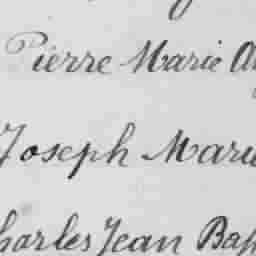 Pierre Marie
Joseph Marie
Charles Jean Bap